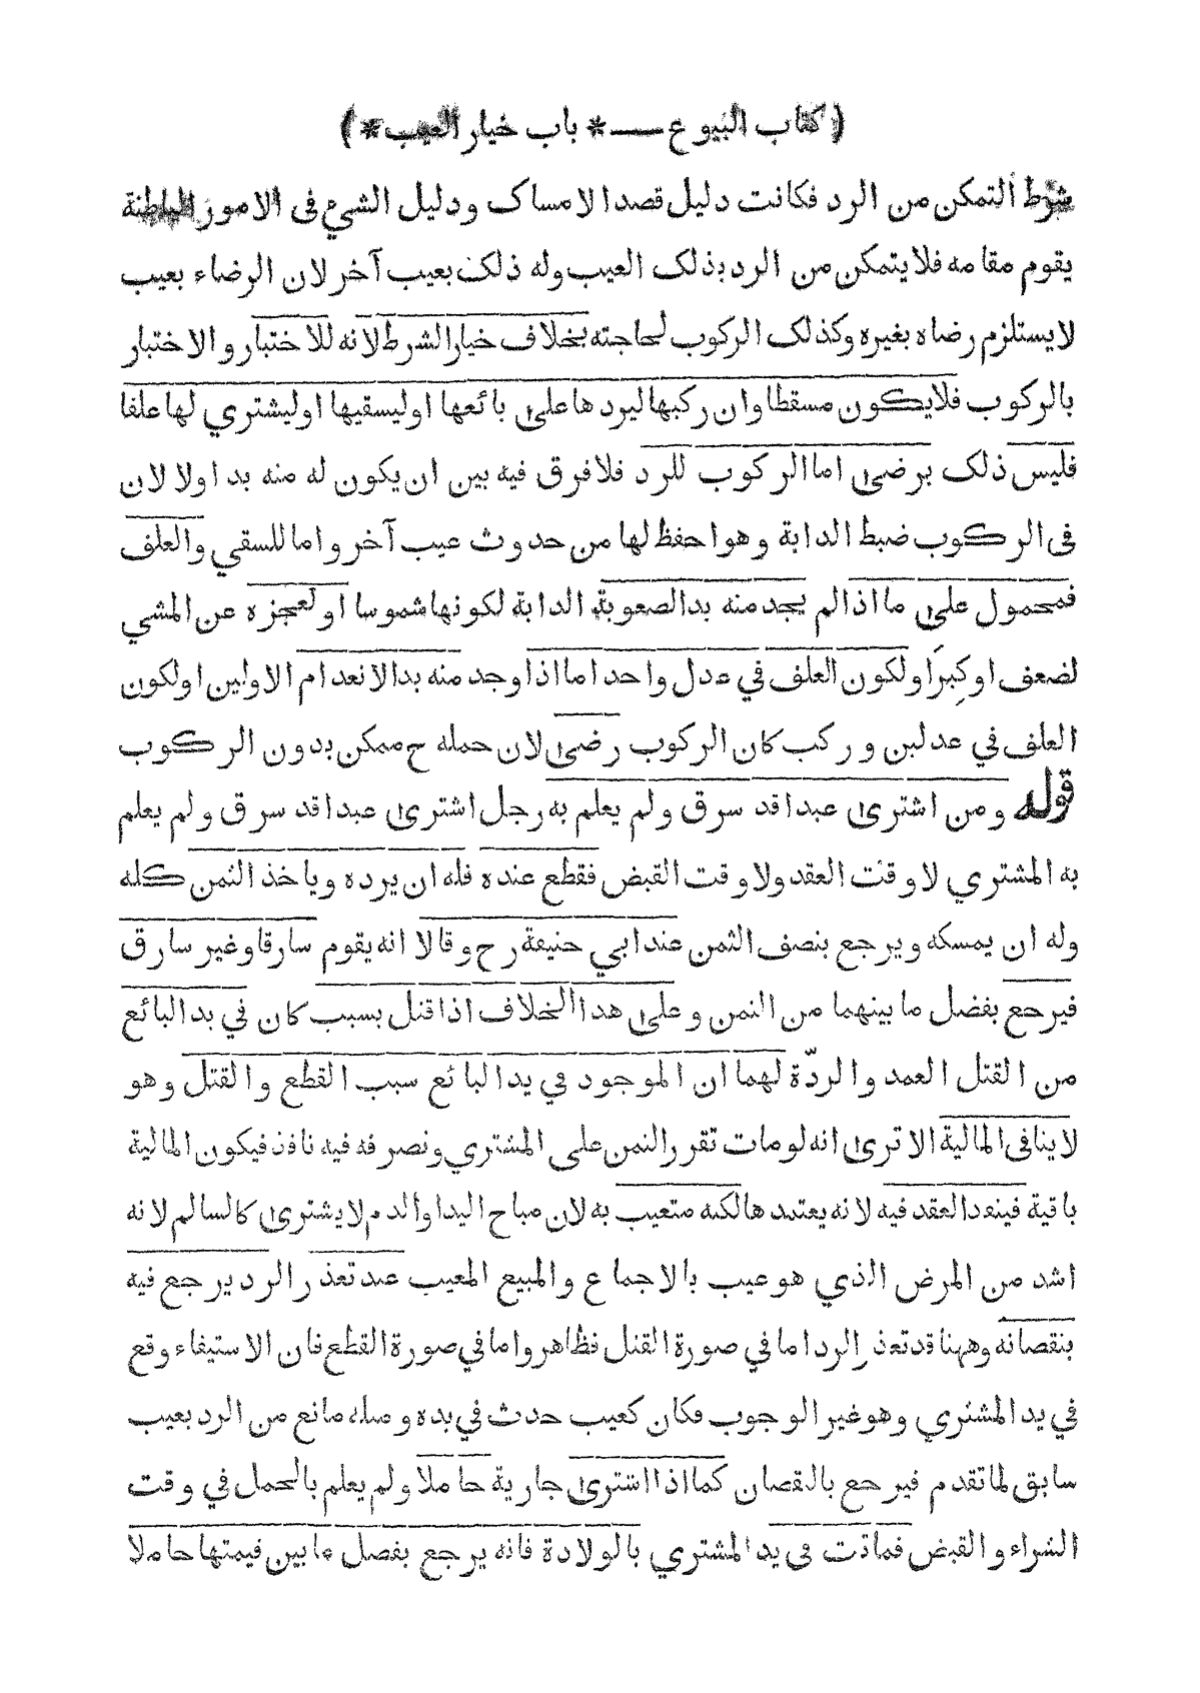 ( كتاب البيوع — * باب خيار العيب * )
شرط التمكن من الرد فكانت دليل قصد الامساك ودليل الشيء فى الامور الباطنة
يقوم مقامه فلا يتمكن من الرد بذلك العيب وله ذلك بعيب آخر لان الرضاء بعيب
لا يستلزم رضاه بغيره وكذلك الركوب لحاجته بخلاف خيار الشرط لانه للاختبار والاختبار
بالركوب فلا يكون مسقطا وان ركبها ليردها على بائعها او ليسقيها او ليشتري لها علفا
فليس ذلك برضى اما الركوب للرد فلا فرق فيه بين ان يكون له منه بد اولا لان
فى الركوب ضبط الدابة وهو احفظ لها من حدوث عيب آخر واما للسقي والعلف
فمحمول على ما اذا لم يجد منه بدا لصعوبة الدابة لكونها شموسا او لعجزه عن المشي
لضعف او كبر او لكون العلف في عدل واحد اما اذا وجد منه بدا لانعدام الاولين او لكون
العلف في عدلين و ركب كان الركوب رضى لان حمله ح ممكن بدون الركوب
قوله ومن اشترى عبدا قد سرق ولم يعلم به رجل اشترى عبدا قد سرق ولم يعلم
به المشتري لا وقت العقد ولا وقت القبض فقطع عنده فله ان يرده وياخذ الثمن كله
وله ان يمسكه ويرجع بنصف الثمن عند ابي حنيفة رح وقالا انه يقوم سارقا وغير سارق
فيرجع بفضل ما بينهما من الثمن وعلى هذا الخلاف اذا قتل بسبب كان في يد البائع
من القتل العمد والردّة لهما ان الموجود في يد البائع سبب القطع والقتل وهو
لا ينافى المالية الا ترى انه لو مات تقرر الثمن على المشتري وتصرفه فيه نافذ فيكون المالية
باقية فينفذ العقد فيه لانه يعتمدها لكنه متعيب به لان مباح اليد او الدم لا يشترى كالسالم لانه
اشد من المرض الذي هو عيب بالاجماع والمبيع المعيب عند تعذر الرد يرجع فيه
بنقصانه وههنا قد تعذر الرد اما في صورة القتل فظاهر واما في صورة القطع فان الاستيفاء وقع
في يد المشتري وهو غير الوجوب فكان كعيب حدث في يده ومثله مانع من الرد بعيب
سابق لما تقدم فيرجع بالنقصان كما اذا اشترى جارية حاملا ولم يعلم بالحمل في وقت
الشراء والقبض فماتت في يد المشتري بالولادة فانه يرجع بفضل ما بين قيمتها حاملا